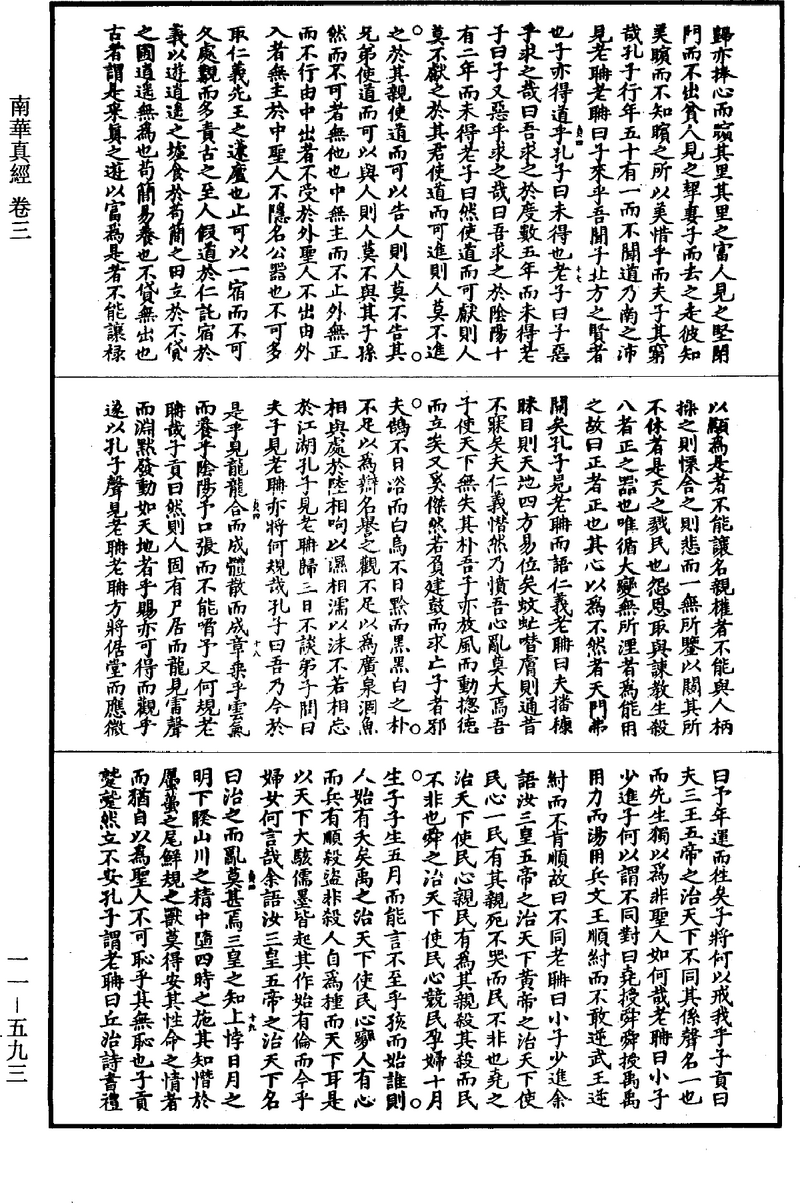 南華真經 卷三
歸亦捧心而矉其里其里之富人見之堅閉
門而不出貧人見之挈妻子而去之走彼知
美矉而不知矉之所以美惜乎而夫子其窮
哉孔子行年五十有一而不聞道乃南之沛
見老聃老聃曰子來乎吾聞子北方之賢者
也子亦得道乎孔子曰未得也老子曰子惡
乎求之哉曰吾求之於度數五年而未得老
子曰子又惡乎求之哉曰吾求之於陰陽十
有二年而未得老子曰然使道而可獻則人
莫不獻之於其君使道而可進則人莫不進
之於其親使道而可以告人則人莫不告其
兄弟使道而可以與人則人莫不與其子孫
然而不可者無他也中無主而不止外無正
而不行由中出者不受於外聖人不出由外
入者無主於中聖人不隱名公器也不可多
取仁義先王之蘧廬也止可以一宿而不可
久處覯而多責古之至人假道於仁託宿於
義以遊逍遙之墟食於苟簡之田立於不貸
之圃逍遙無為也苟簡易養也不貸無出也
古者謂是采真之遊以富為是者不能讓祿
以顯為是者不能讓名親權者不能與人柄
操之則慄舍之則悲而一無所鑒以闚其所
不休者是天之戮民也怨恩取與諫教生殺
八者正之器也唯循大變無所湮者為能用
之故曰正者正也其心以為不然者天門弗
開矣孔子見老聃而語仁義老聃曰夫播穅
眯目則天地四方易位矣蚊虻噆膚則通昔
不寐矣夫仁義憯然乃憤吾心亂莫大焉吾
子使天下無失其朴吾子亦放風而動揔德
而立矣又奚傑然若負建鼓而求亡子者邪
夫鵠不日浴而白烏不日黔而黑黑白之朴
不足以為辯名譽之觀不足以為廣泉涸魚
相與處於陸相呴以濕相濡以沫不若相忘
於江湖孔子見老聃歸三日不談弟子問曰
夫子見老聃亦將何規哉孔子曰吾乃今於
是乎見龍龍合而成體散而成章乘乎雲氣
而養乎陰陽予口張而不能嗋予又何規老
聃哉子貢曰然則人固有尸居而龍見雷聲
而淵默發動如天地者乎賜亦可得而觀乎
遂以孔子聲見老聃老聃方將倨堂而應微
曰予年運而往矣子將何以戒我乎子貢曰
夫三王五帝之治天下不同其係聲名一也
而先生獨以為非聖人如何哉老聃曰小子
少進子何以謂不同對曰堯授舜舜授禹禹
用力而湯用兵文王順紂而不敢逆武王逆
紂而不肯順故曰不同老聃曰小子少進余
語汝三皇五帝之治天下黃帝之治天下使
民心一民有其親死不哭而民不非也堯之
治天下使民心親民有為其親殺其殺而民
不非也舜之治天下使民心競民孕婦十月
生子子生五月而能言不至乎孩而始誰則
人始有夭矣禹之治天下使民心變人有心
而兵有順殺盜非殺人自為種而天下耳是
以天下大駭儒墨皆起其作始有倫而今乎
婦女何言哉余語汝三皇五帝之治天下名
曰治之而亂莫甚焉三皇之知上悖日月之
明下睽山川之精中墮四時之施其知憯於
蠆之尾鮮規之獸莫得安其性命之情者
而猶自以為聖人不可恥乎其無恥也子貢
蹵蹵然立不安孔子謂老聃曰丘治詩書禮
十七
十八
十九
一一—五九三